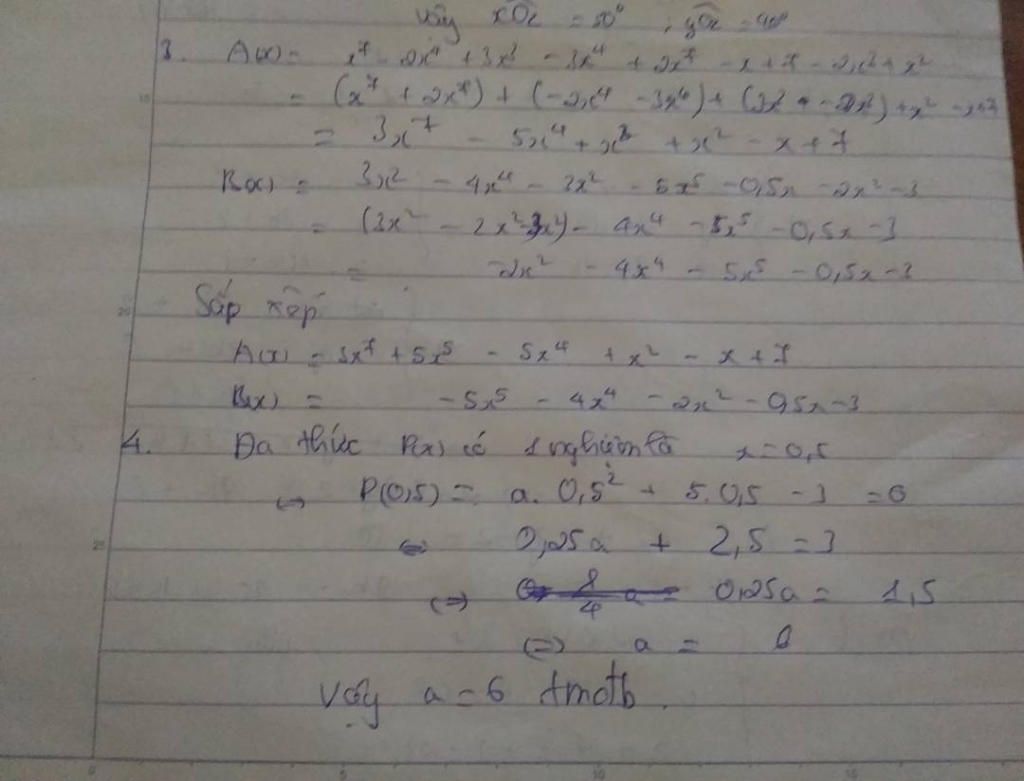 Vậy xOz = 50° ; yOz = 40°
3. A(x) = x⁷ - 2x⁴ + 3x³ - 3x⁴ + 2x⁷ - x + 7 - 2x³ + x²
= (x⁷ + 2x⁷) + (-2x⁴ - 3x⁴) + (3x³ - 2x³) + x² - x + 7
= 3x⁷ - 5x⁴ + x³ + x² - x + 7
B(x) = 3x² - 4x⁴ - 3x² - 5x⁵ - 0,5x - 2x² - 3
= (3x² - 2x² - 3x²) - 4x⁴ - 5x⁵ - 0,5x - 3
= -2x² - 4x⁴ - 5x⁵ - 0,5x - 3
Sắp xếp
A(x) = 3x⁷ + 5x⁵ - 5x⁴ + x² - x + 7
B(x) = -5x⁵ - 4x⁴ - 2x² - 0,5x - 3
4. Đa thức P(x) có 1 nghiệm là x = 0,5
⇔ P(0,5) = a. 0,5² + 5.0,5 - 3 = 0
⇔ 0,25a + 2,5 = 3
⇔ 0,25a = 1,5
⇔ a = 6
Vậy a = 6 tmđtb.